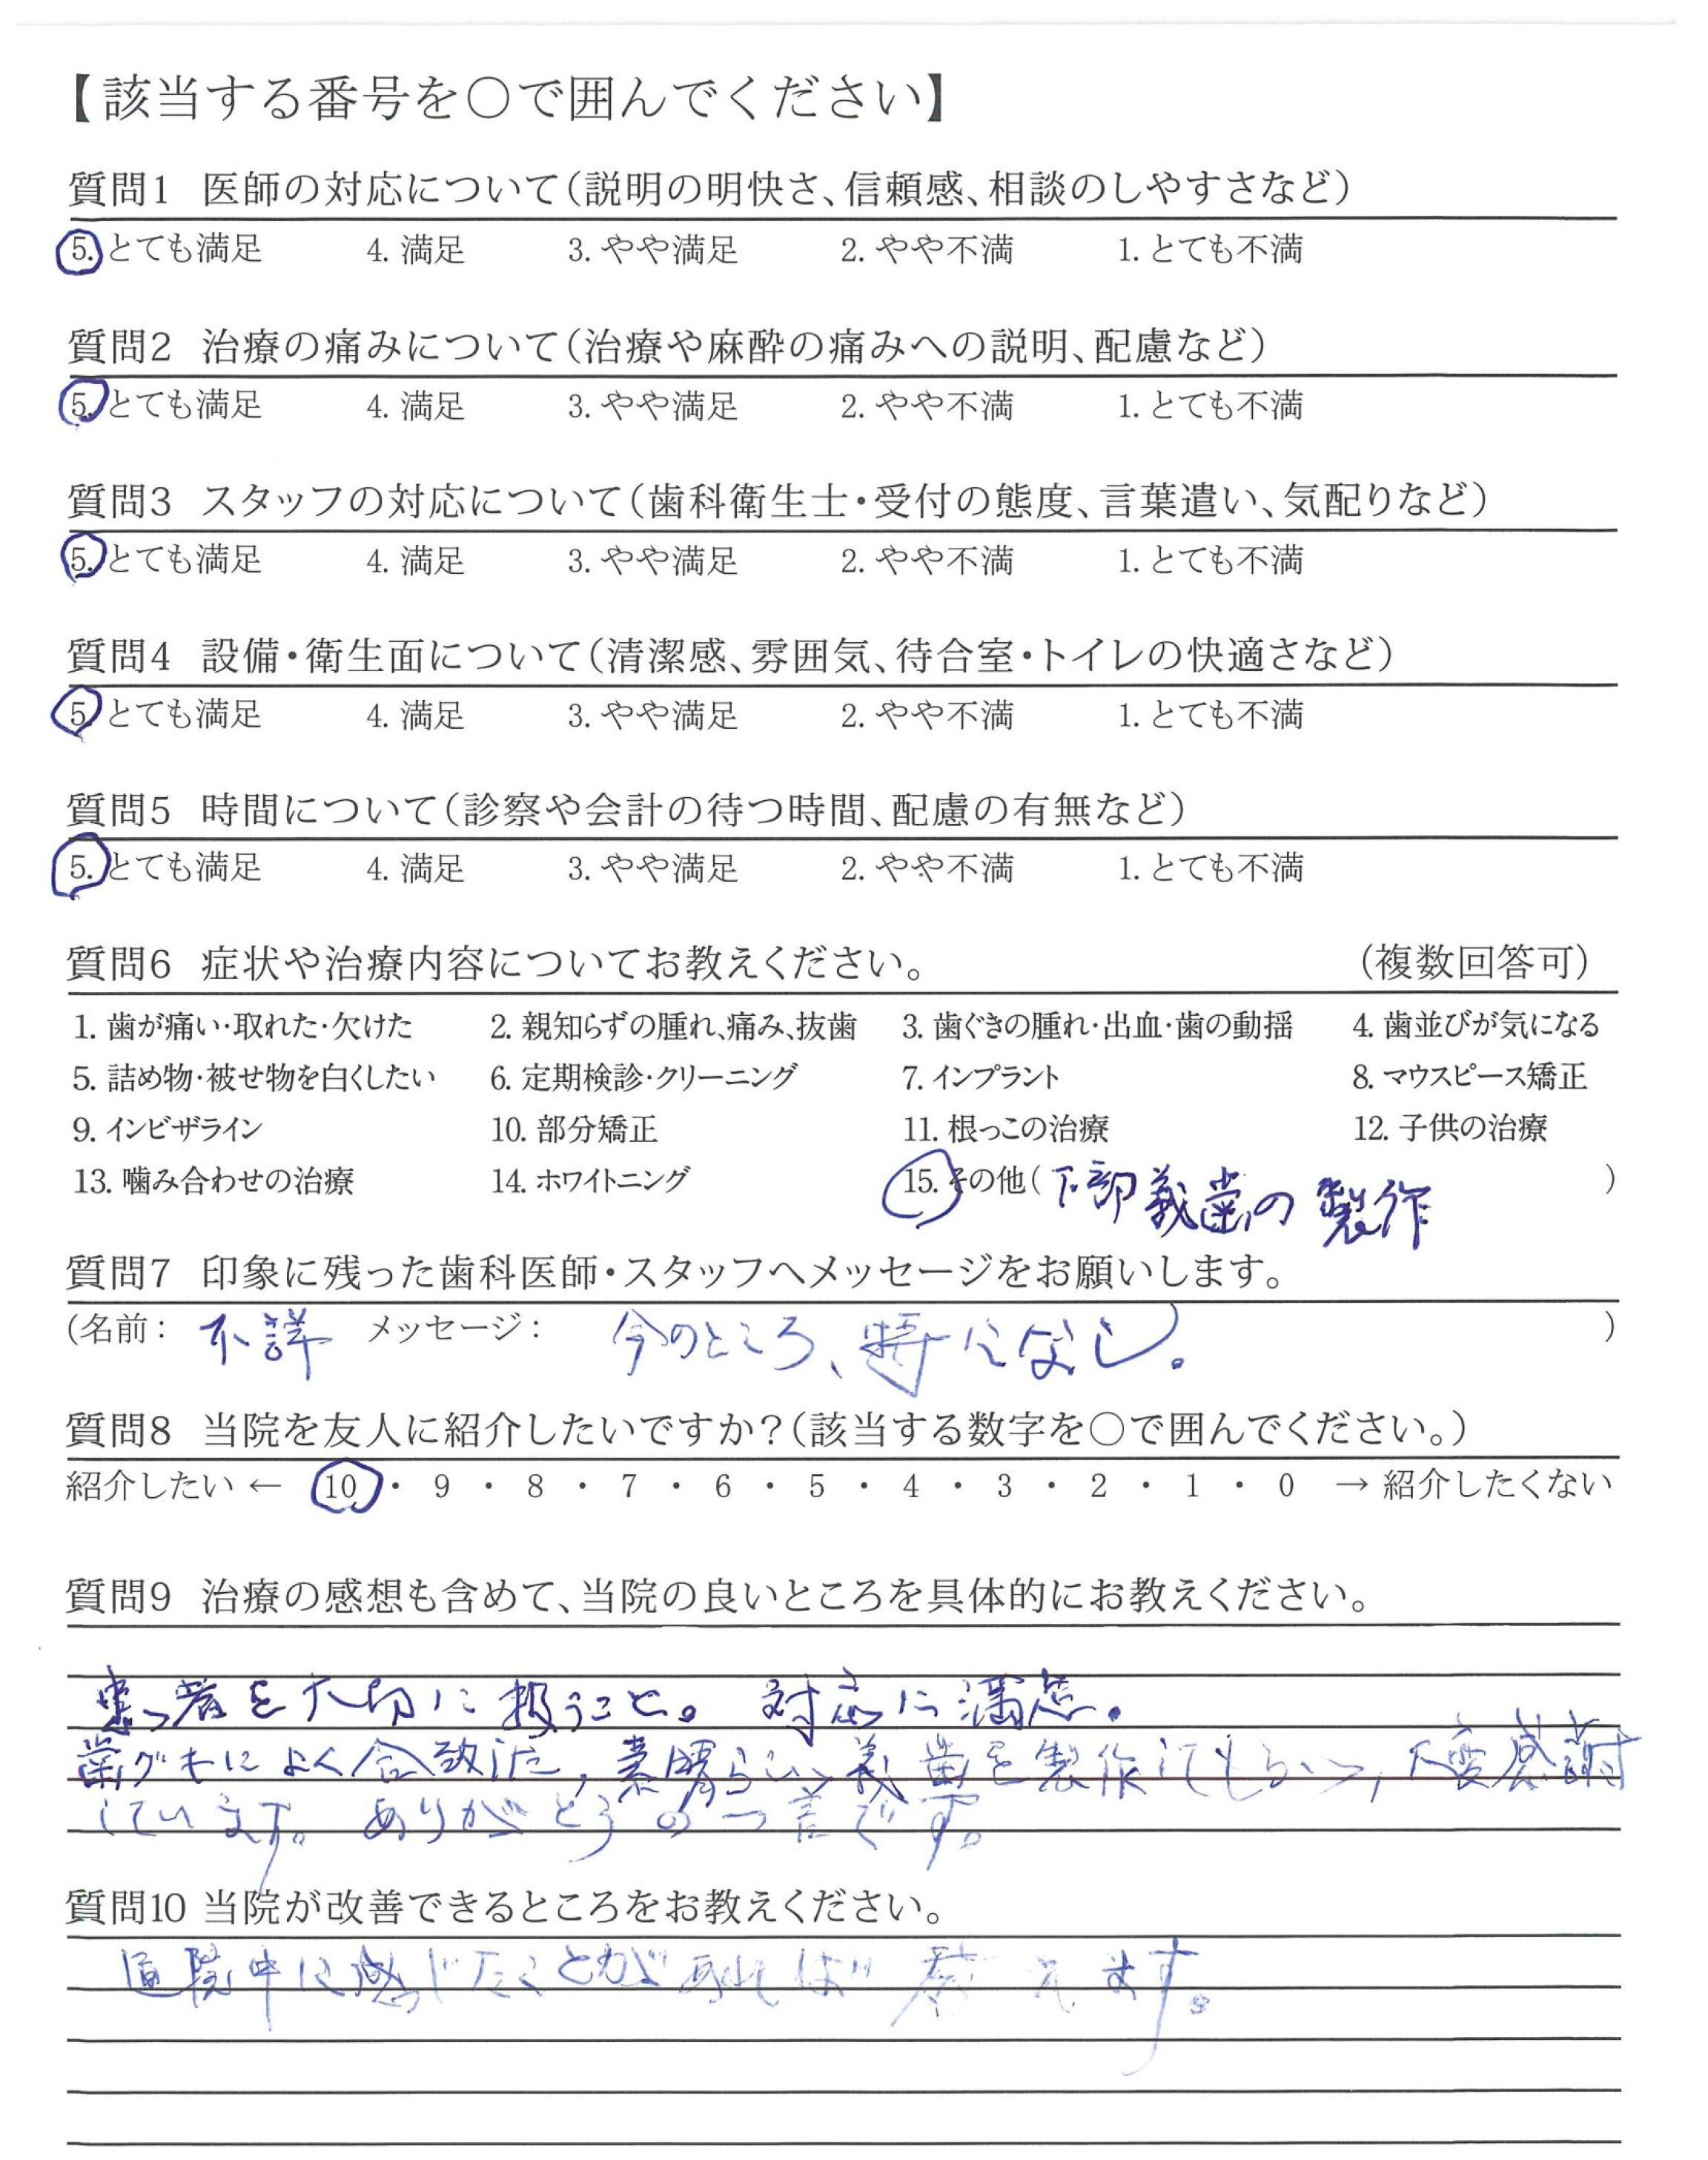 【該当する番号を○で囲んでください】
質問1 医師の対応について(説明の明快さ、信頼感、相談のしやすさなど)
5. とても満足 4. 満足 3. やや満足 2. やや不満 1. とても不満
質問2 治療の痛みについて(治療や麻酔の痛みへの説明、配慮など)
5. とても満足 4. 満足 3. やや満足 2. やや不満 1. とても不満
質問3 スタッフの対応について(歯科衛生士・受付の態度、言葉遣い、気配りなど)
5. とても満足 4. 満足 3. やや満足 2. やや不満 1. とても不満
質問4 設備・衛生面について(清潔感、雰囲気、待合室・トイレの快適さなど)
5. とても満足 4. 満足 3. やや満足 2. やや不満 1. とても不満
質問5 時間について(診察や会計の待つ時間、配慮の有無など)
5. とても満足 4. 満足 3. やや満足 2. やや不満 1. とても不満
質問6 症状や治療内容についてお教えください。 (複数回答可)
1. 歯が痛い・取れた・欠けた 2. 親知らずの腫れ、痛み、抜歯 3. 歯ぐきの腫れ・出血・歯の動揺 4. 歯並びが気になる
5. 詰め物・被せ物を白くしたい 6. 定期検診・クリーニング 7. インプラント 8. マウスピース矯正
9. インビザライン 10. 部分矯正 11. 根っこの治療 12. 子供の治療
13. 噛み合わせの治療 14. ホワイトニング 15. その他(下部義歯の製作)
質問7 印象に残った歯科医師・スタッフへメッセージをお願いします。
(名前: 不詳 メッセージ: 今のところ、特になし。)
質問8 当院を友人に紹介したいですか?(該当する数字を○で囲んでください。)
紹介したい ← 10 ・ 9 ・ 8 ・ 7 ・ 6 ・ 5 ・ 4 ・ 3 ・ 2 ・ 1 ・ 0 → 紹介したくない
質問9 治療の感想も含めて、当院の良いところを具体的にお教えください。
患者を大切に扱うこと。 対応に満点。
歯グキによく合致した、素晴らしい義歯を製作してもらい、大変感謝
しています。 ありがとうの一言です。
質問10 当院が改善できるところをお教えください。
通院中に感じたことがあれば 教えます。